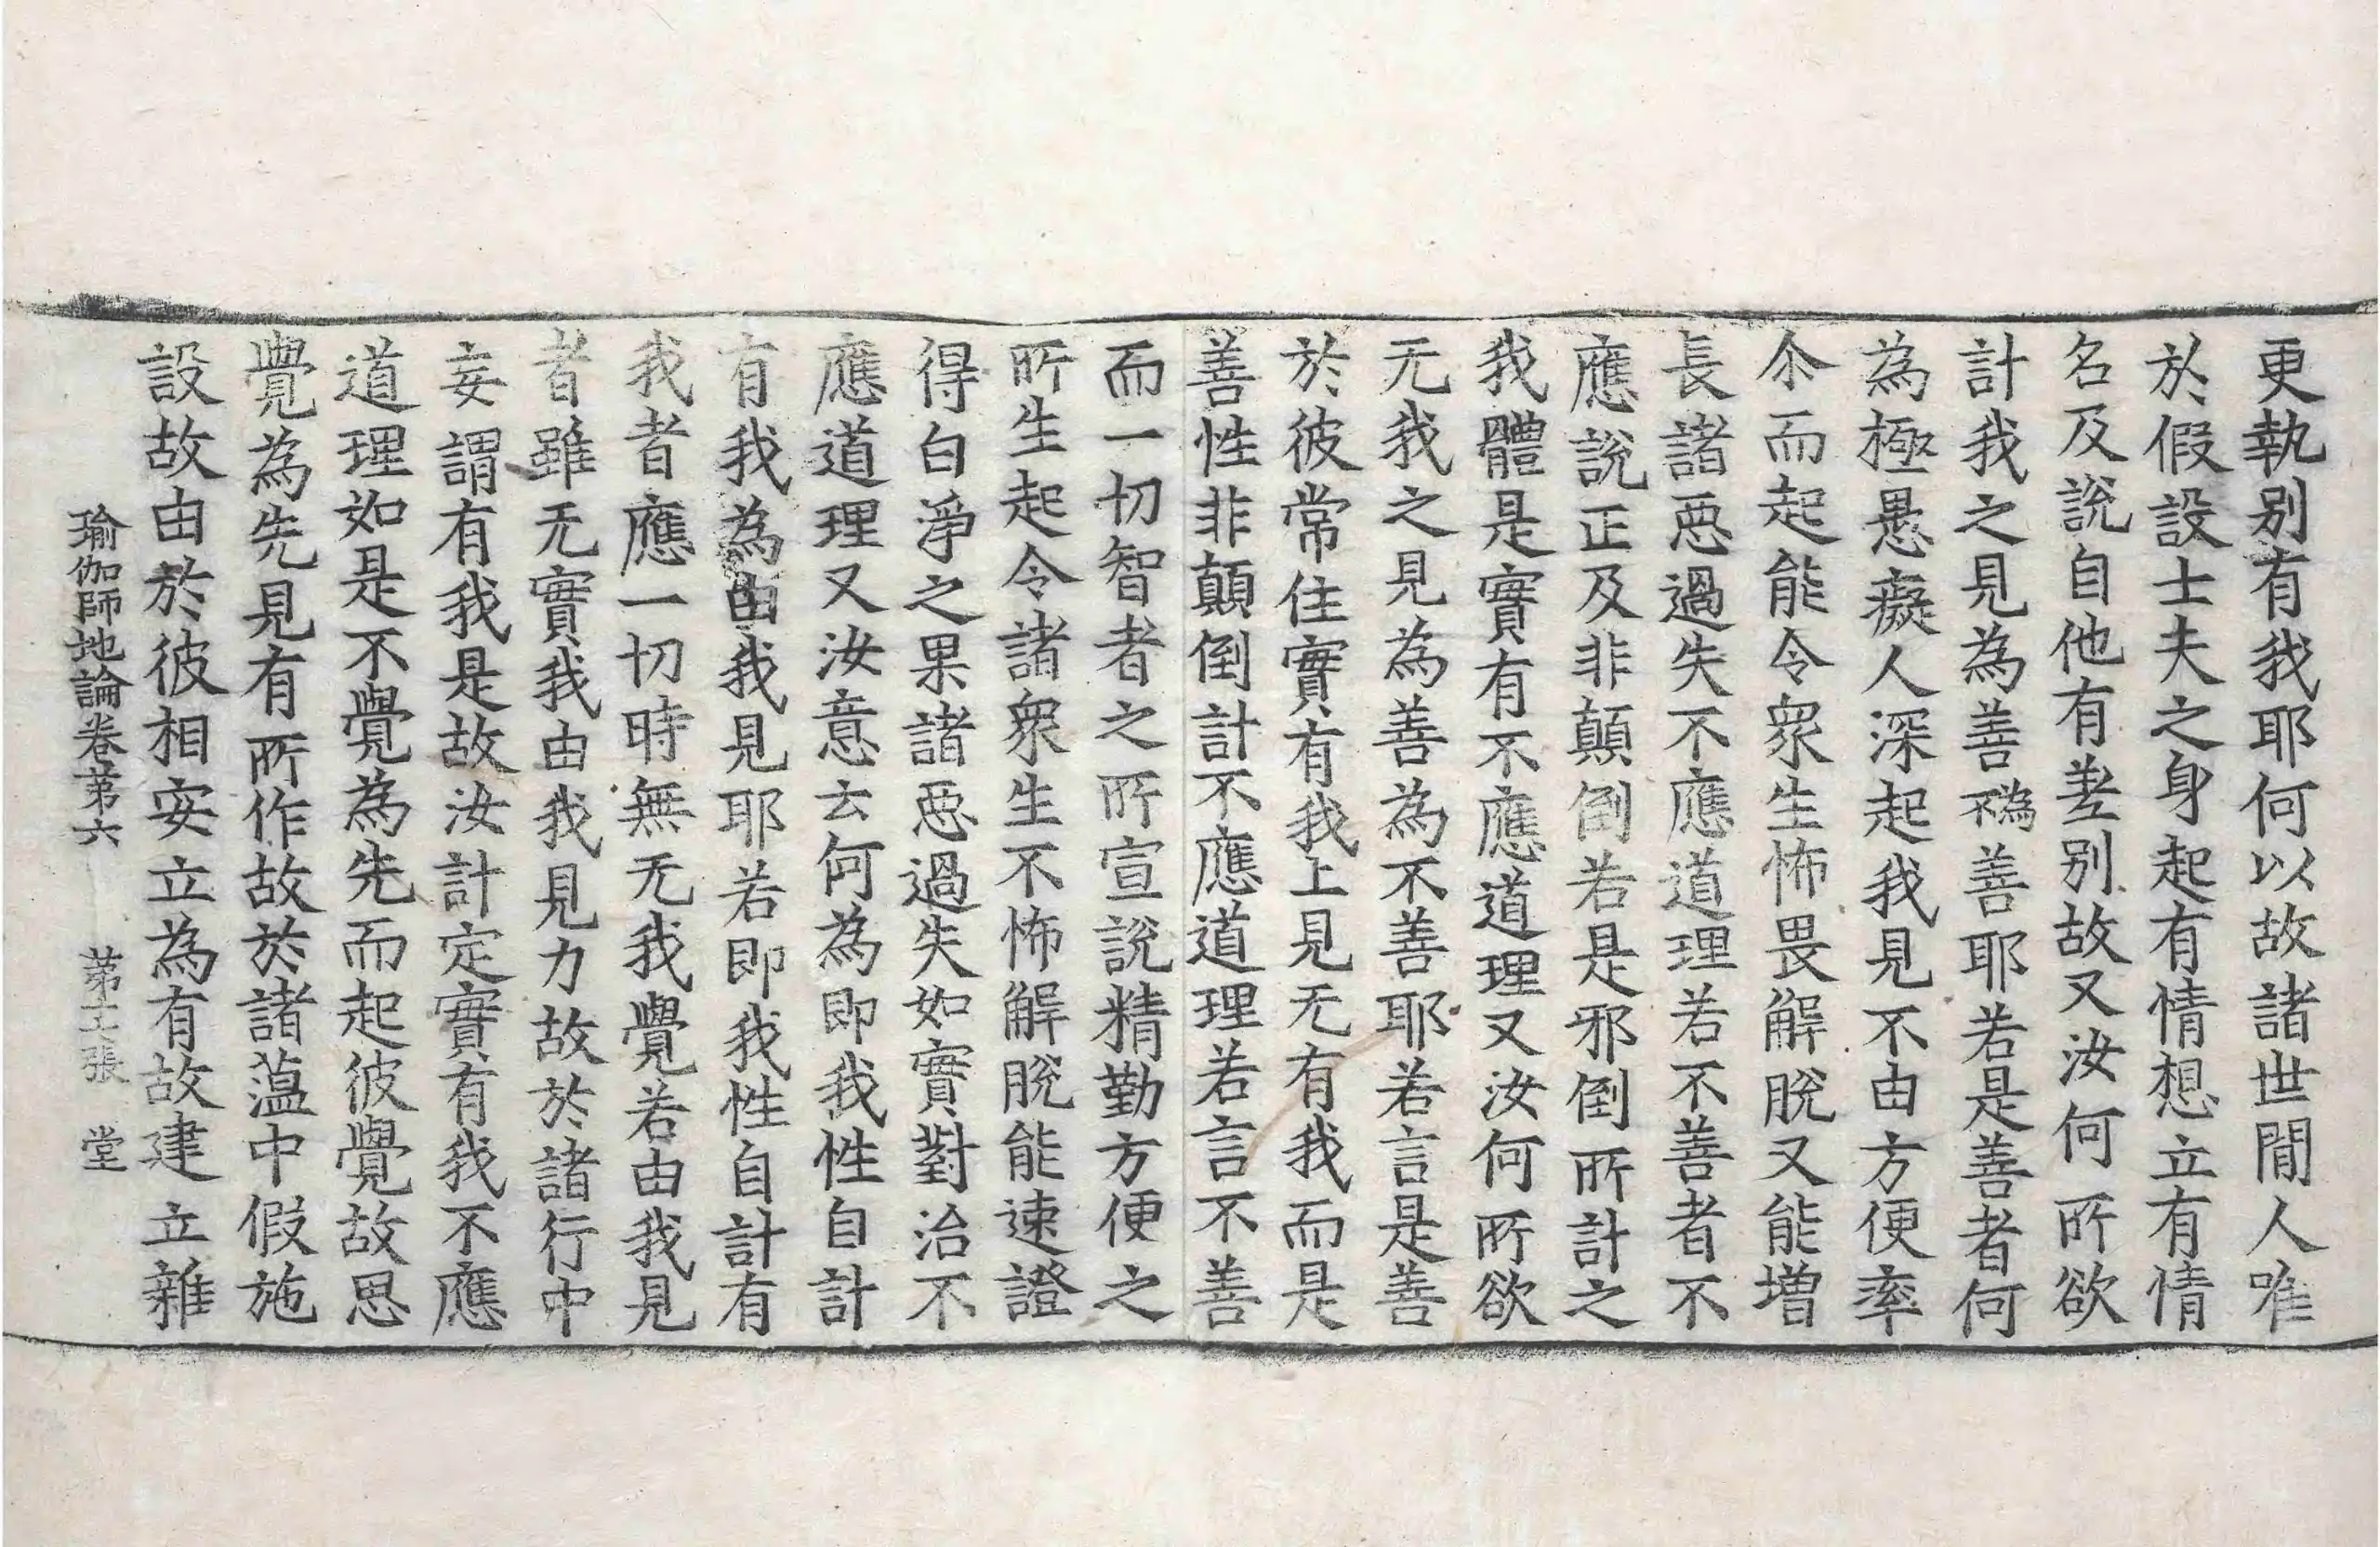 更執别有我耶何以故諸世閒人唯
於假設士夫之身起有情想立有情
名及說自他有差别故又汝何所欲
計我之見為善不為善耶若是善者何
為極愚癡人深起我見不由方便率
尒而起能令衆生怖畏解脫又能增
長諸惡過失不應道理若不善者不
應說正及非顛倒若是邪倒所計之
我體是實有不應道理又汝何所欲
无我之見為善為不善耶若言是善
於彼常住實有我上見无有我而是
善性非顛倒計不應道理若言不善
而一切智者之所宣說精勤方便之
所生起令諸衆生不怖解脫能速證
得白淨之果諸惡過失如實對治不
應道理又汝意云何為即我性自計
有我為由我見耶若即我性自計有
我者應一切時無无我覺若由我見
者雖无實我由我見力故於諸行中
妄謂有我是故汝計定實有我不應
道理如是不覺為先而起彼覺故思
覺為先見有所作故於諸蘊中假施
設故由於彼相安立為有故建立雜
瑜伽師地論卷第六 第十七張 堂